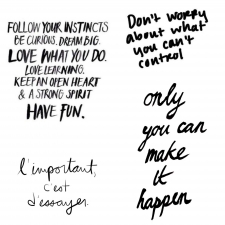 FOLLOW YOUR INSTINCTS
BE CURIOUS. DREAM BIG.
LOVE WHAT YOU DO.
LOVE LEARNING.
KEEP AN OPEN HEART
& A STRONG SPIRIT
HAVE FUN.
Don't worry
about what
you can't
control
l'important,
c'est
d'essayer.
only
you can
make
it
happen